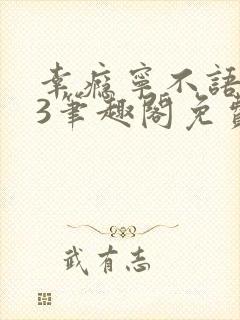 幸瘾宁不語
3筆趣閣免費
武有志